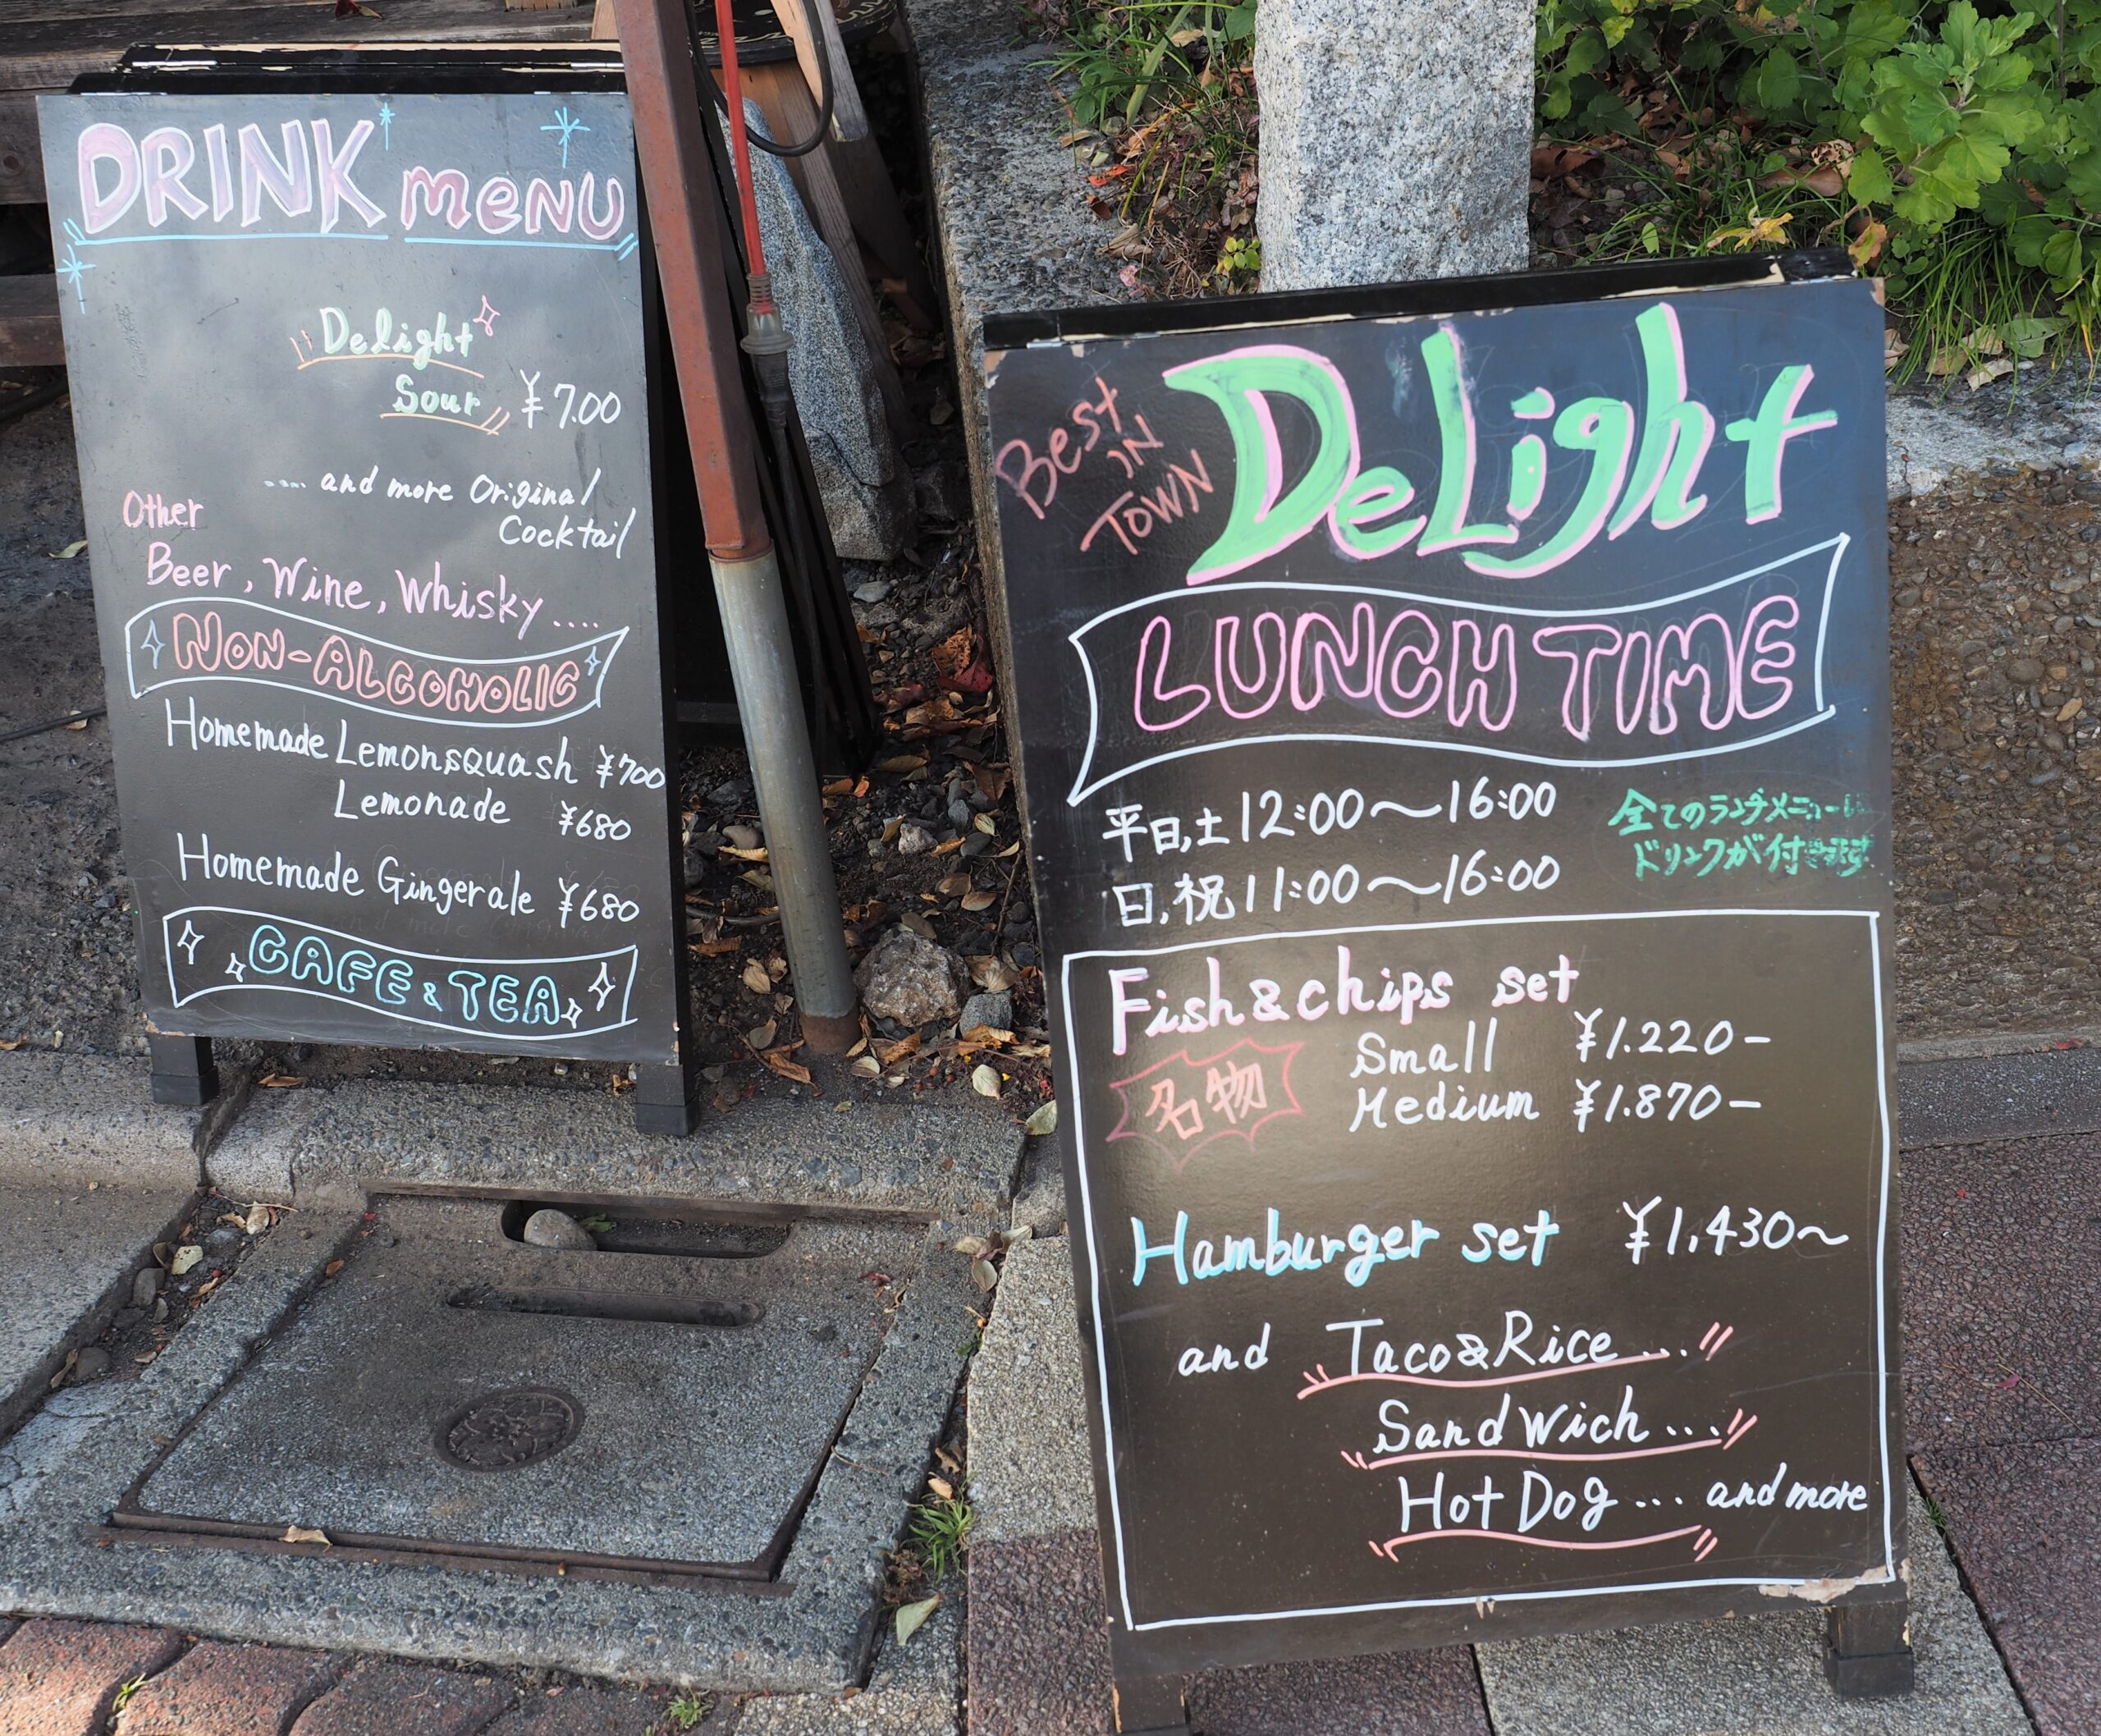 DRINK MENU
Delight
Sour ¥7.00
.... and more Original
Cocktail
Other
Beer, Wine, Whisky ....
NON-ALCOHOLIC
Homemade Lemonsquash ¥700
Lemonade ¥680
Homemade Gingerale ¥680
CAFE & TEA
Best
IN
TOWN
DeLight
LUNCH TIME
平日,土 12:00〜16:00
日,祝 11:00〜16:00
全てのランチメニューに
ドリンクが付きます
Fish&chips set
名物
Small ¥1.220-
Medium ¥1.870-
Hamburger set ¥1,430〜
and Taco&Rice ...
Sandwich ...
Hot Dog ... and more